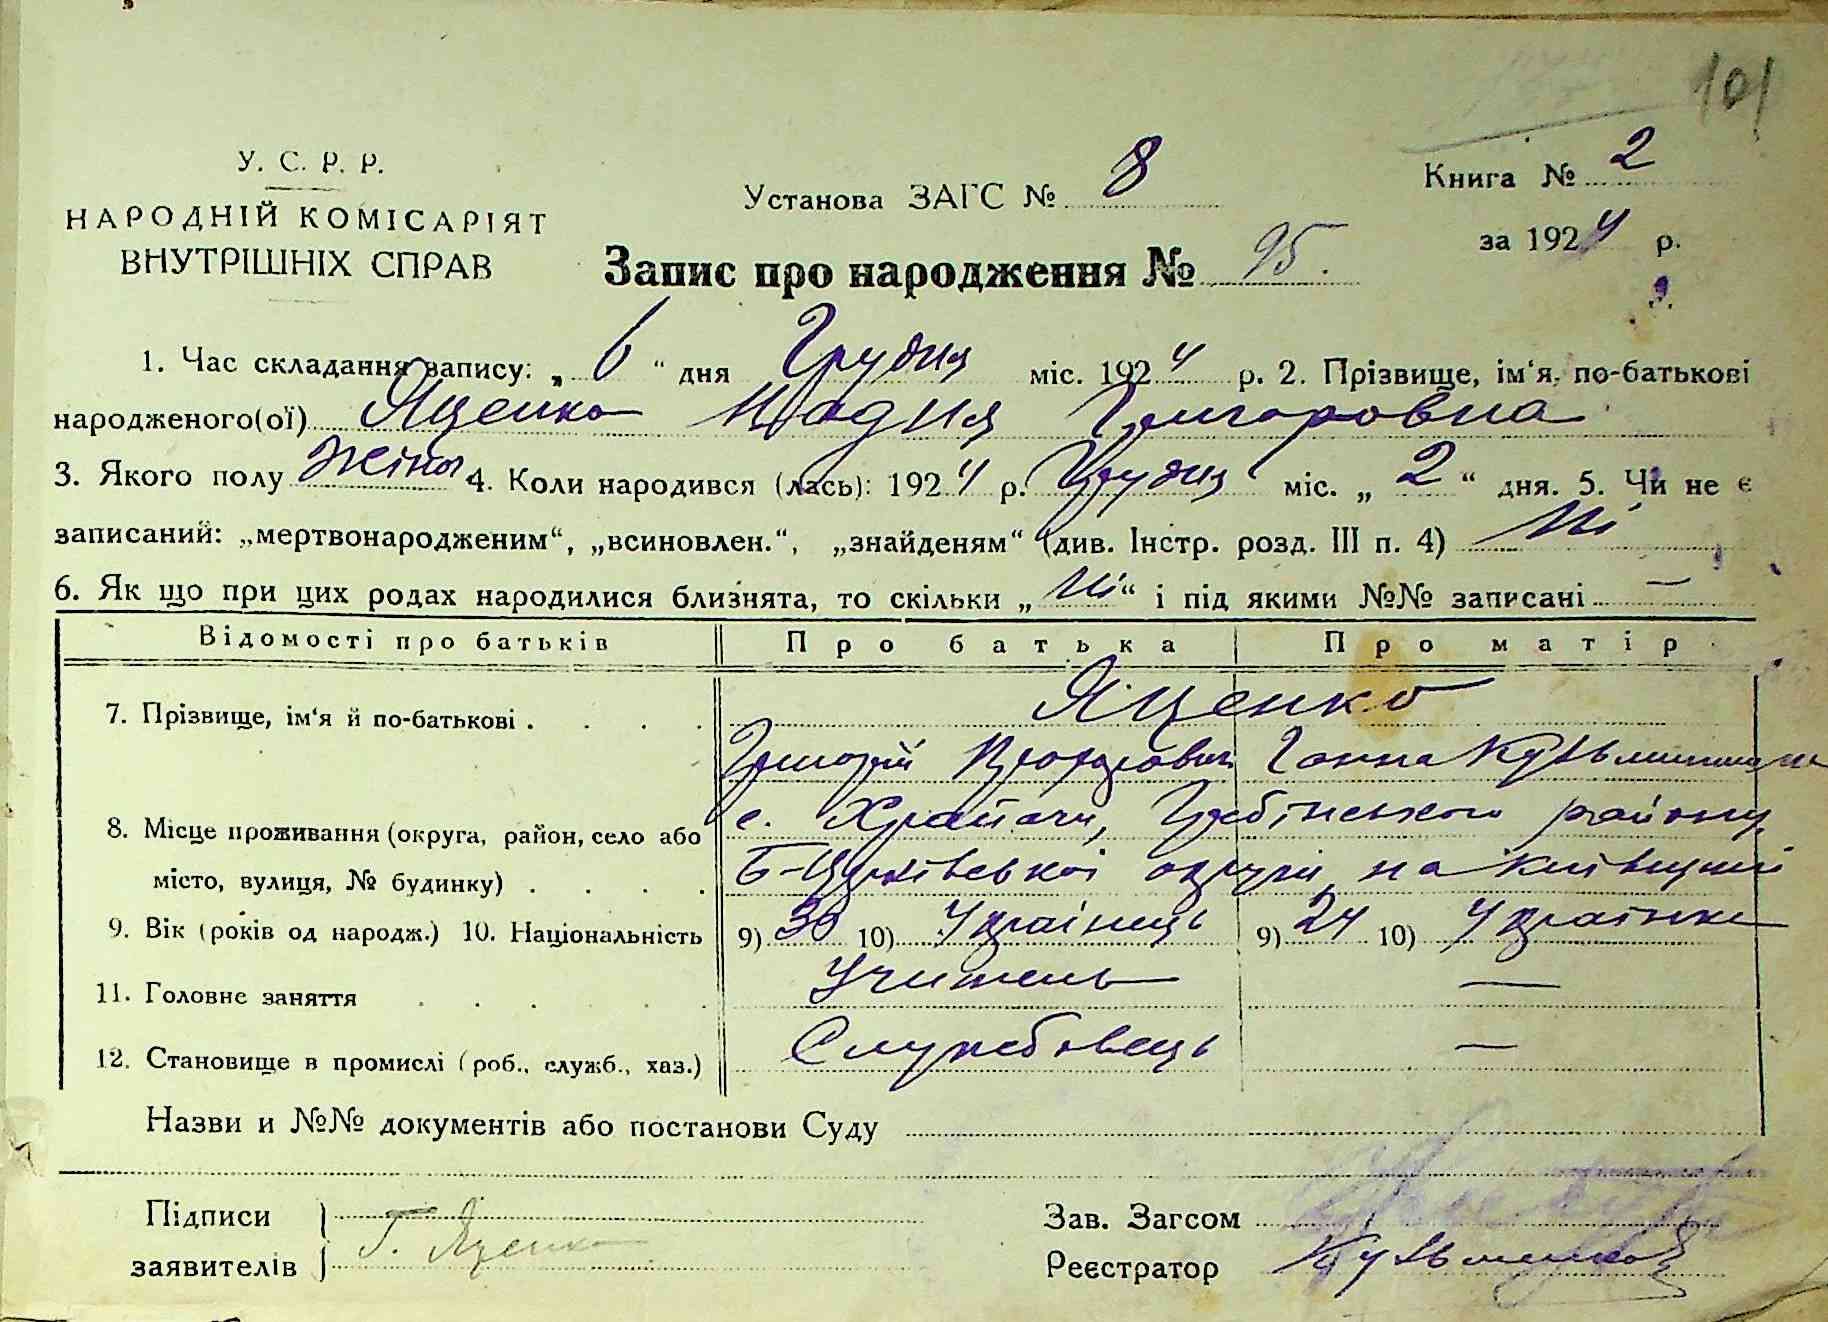 101
У. С. Р. Р.
НАРОДНІЙ КОМІСАРІЯТ
ВНУТРІШНІХ СПРАВ
Установа ЗАГС № 8
Книга № 2
за 1924 р.
Запис про народження № 95.
1. Час складання запису: „ 6 “ дня Грудня міс. 1924 р. 2. Прізвище, ім‘я, по-батькові
народженого(ої) Яценко Надия Григоровна
3. Якого полу Жіноч 4. Коли народився (лась): 1924 р. Грудня міс. „ 2 “ дня. 5. Чи не є
записаний: „мертвонародженим“, „всиновлен.“, „знайденям“ (див. Інстр. розд. III п. 4) Ні
6. Як що при цих родах народилися близнята, то скільки „ Ні “ і під якими №№ записані —
Відомості про батьків Про батька Про матір
7. Прізвище, ім‘я й по-батькові . . . . Яценко
Григорій Ганна
8. Місце проживання (округа, район, село або с. району
місто, вулиця, № будинку) . . . . Б-Церківської округи на Київщині
9. Вік (років од народж.) 10. Національність 9) 30 10) Українець 9) 24 10) Українка
11. Головне заняття . . . . . Учитель —
12. Становище в промислі (роб., служб., хаз.) Службовець —
Назви и №№ документів або постанови Суду
Підписи
заявителів Г. Яценко
Зав. Загсом
Реєстратор